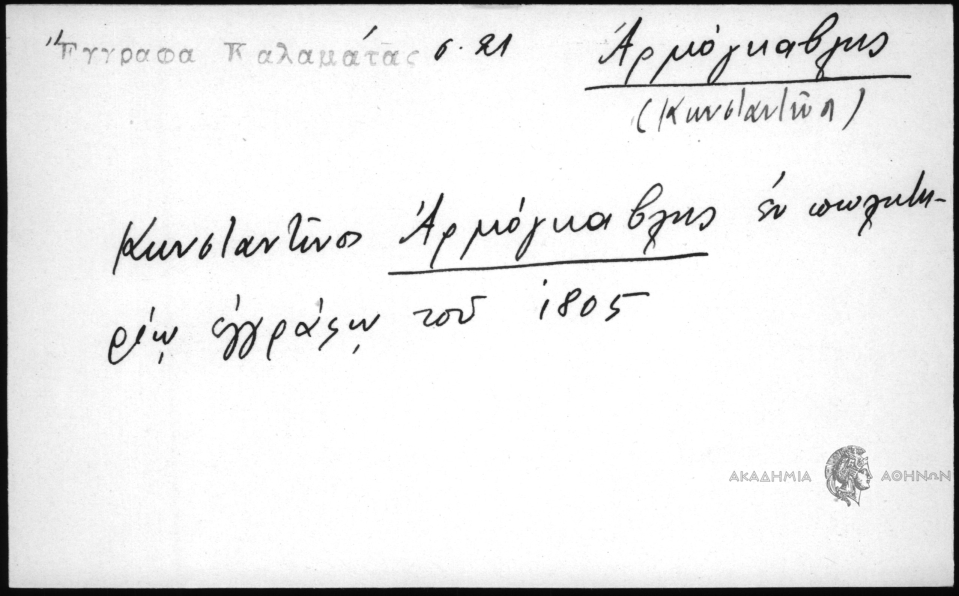 Ἔγγραφα Καλαμάτας σ. 21
Ἀρμόγκαβλης
(Κωνσταντῖνος)
Κωνσταντῖνος Ἀρμόγκαβλης ἐν πωλητη-
ρίῳ ἐγγράφῳ τοῦ 1805
ΑΚΑΔΗΜΙΑ ΑΘΗΝΩΝ